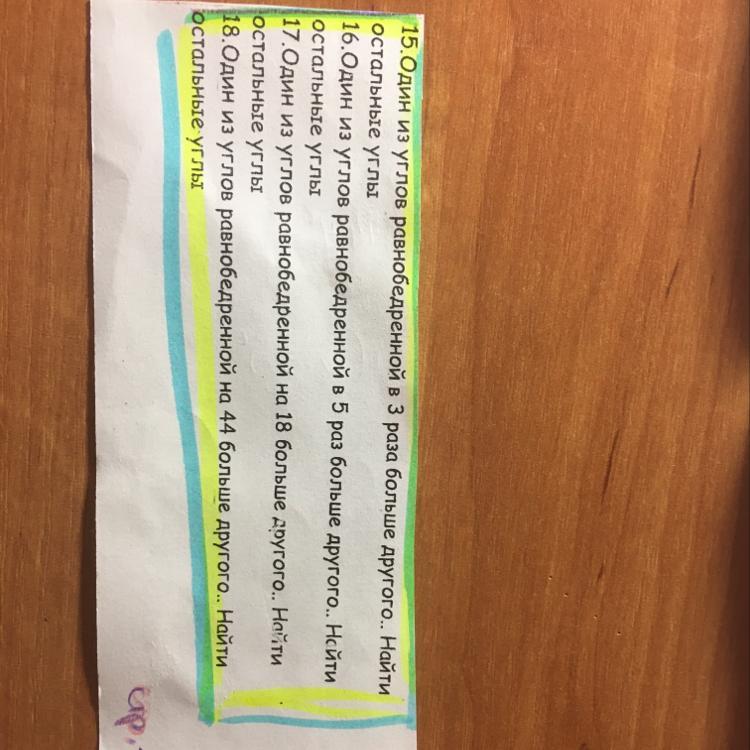 15.Один из углов равнобедренной в 3 раза больше другого.. Найти
остальные углы
16.Один из углов равнобедренной в 5 раз больше другого.. Найти
остальные углы
17.Один из углов равнобедренной на 18 больше другого.. Найти
остальные углы
18.Один из углов равнобедренной на 44 больше другого.. Найти
остальные углы